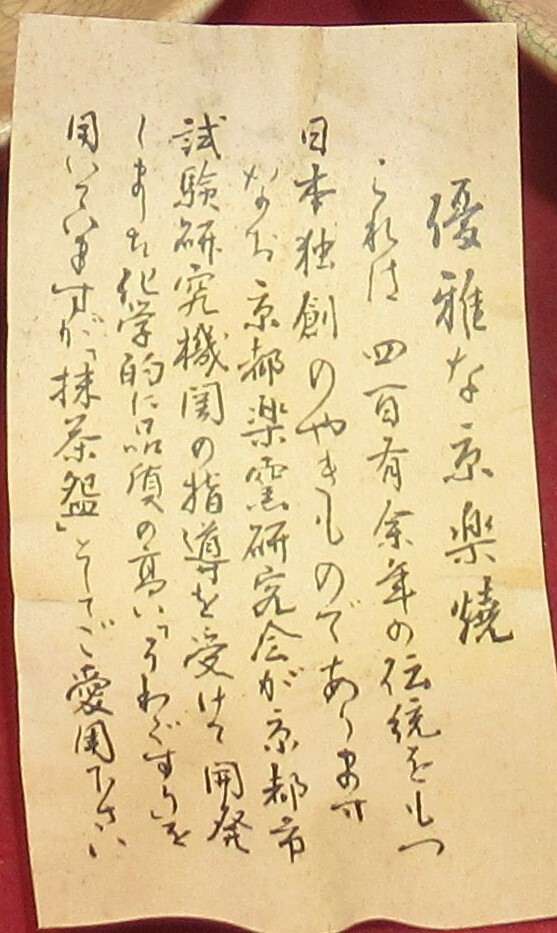 優雅な京楽焼
これは四百有余年の伝統をもつ
日本独創のやきものであります
なお京都楽窯研究会が京都市
試験研究機関の指導を受けて開発
しました化学的に品質の高い「うわぐすり」を
用いていますが「抹茶盌」としてご愛用下さい